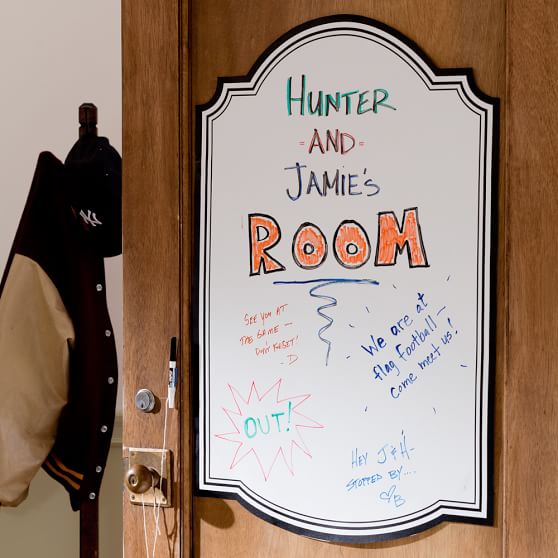 HUNTER
-AND-
JAMIE'S
ROOM
SEE YOU AT
THE GAME —
DON'T FORGET!
- D
We are at
flag football —
come meet us!
OUT!
HEY J & H-
STOPPED BY....
♡B
NY